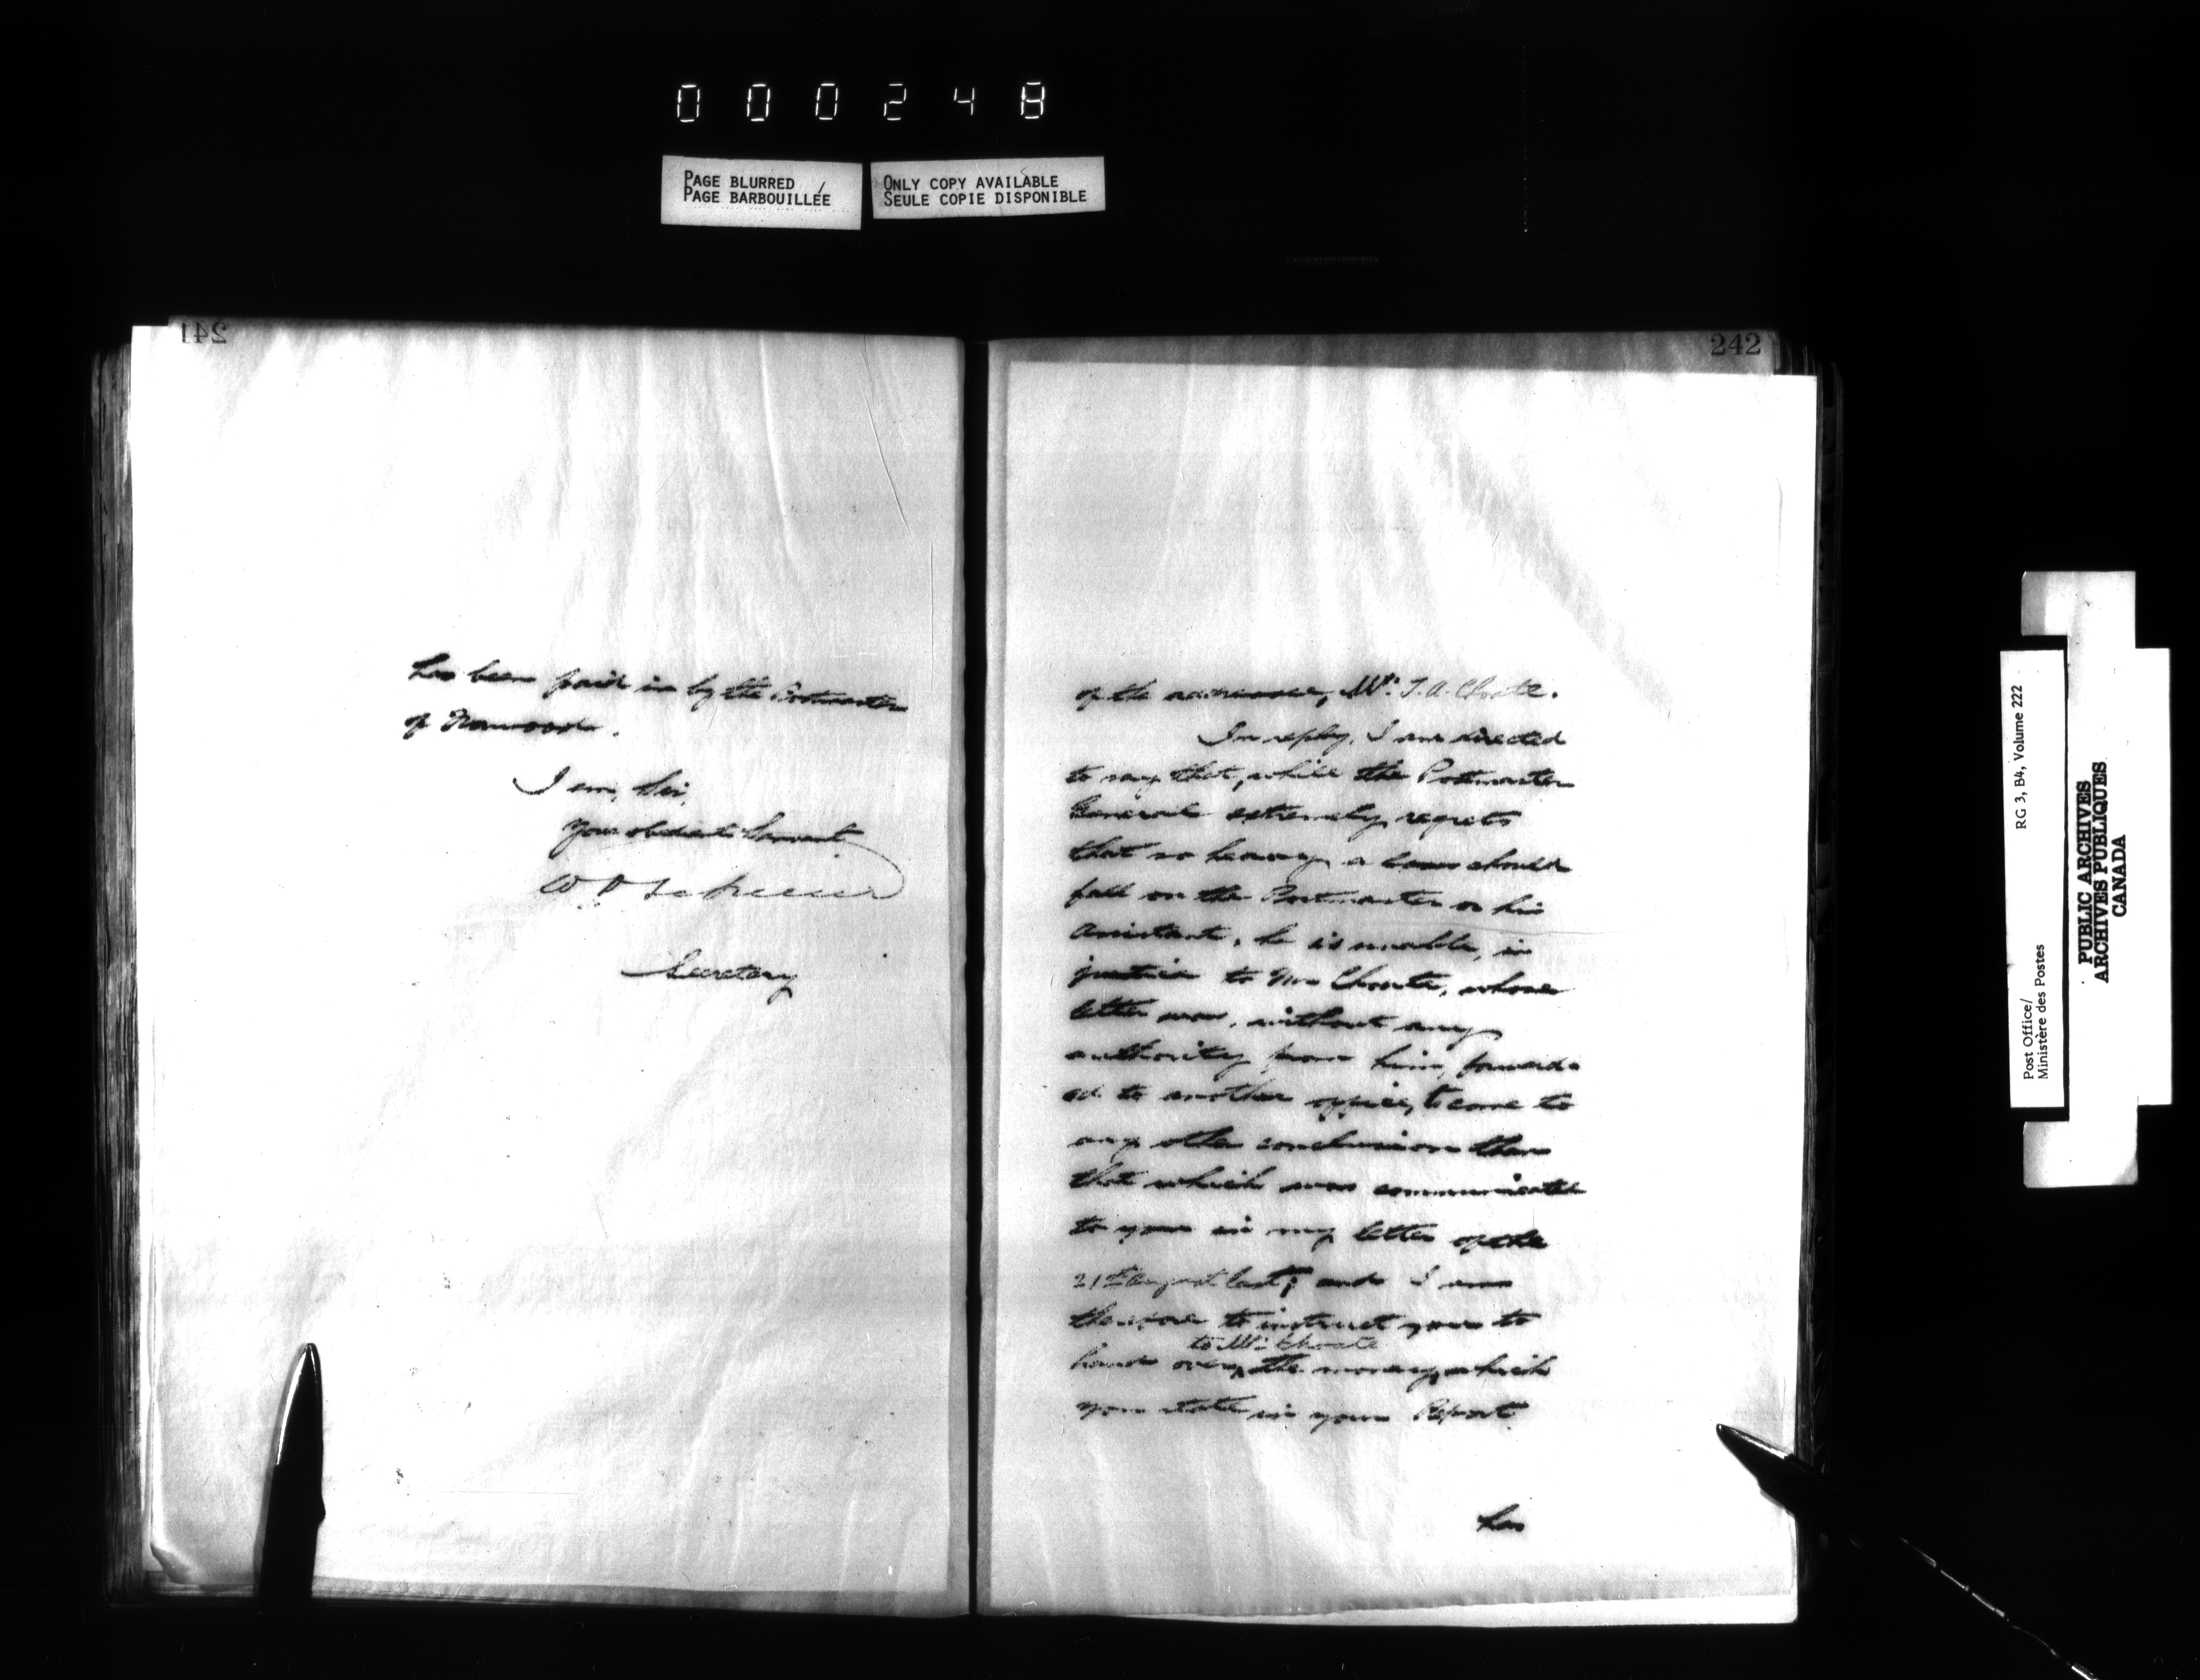 000248
PAGE BLURRED
PAGE BARBOUILLÉE
ONLY COPY AVAILABLE
SEULE COPIE DISPONIBLE
241
has been paid in by the Postmaster
of Norwood.
I am, Sir,
Your obedient Servant
Secretary
242
of the addressee, Mr. T. A. Choate.
In reply, I am directed
to say that, while the Postmaster
General extremely regrets
that so heavy a loss should
fall on the Postmaster or his
Assistant, he is unable, in
justice to Mr Choate, whose
letter was, without any
authority from him, forward-
ed to another office, to come to
any other conclusion than
that which was communicated
to you in my letter of the
21st August last; and I am
therefore to instruct you to
to Mr. Choate
hand over, the money, which
you state in your Report
has
Post Office/
Ministère des Postes
RG 3, B4, Volume 222
PUBLIC ARCHIVES
ARCHIVES PUBLIQUES
CANADA